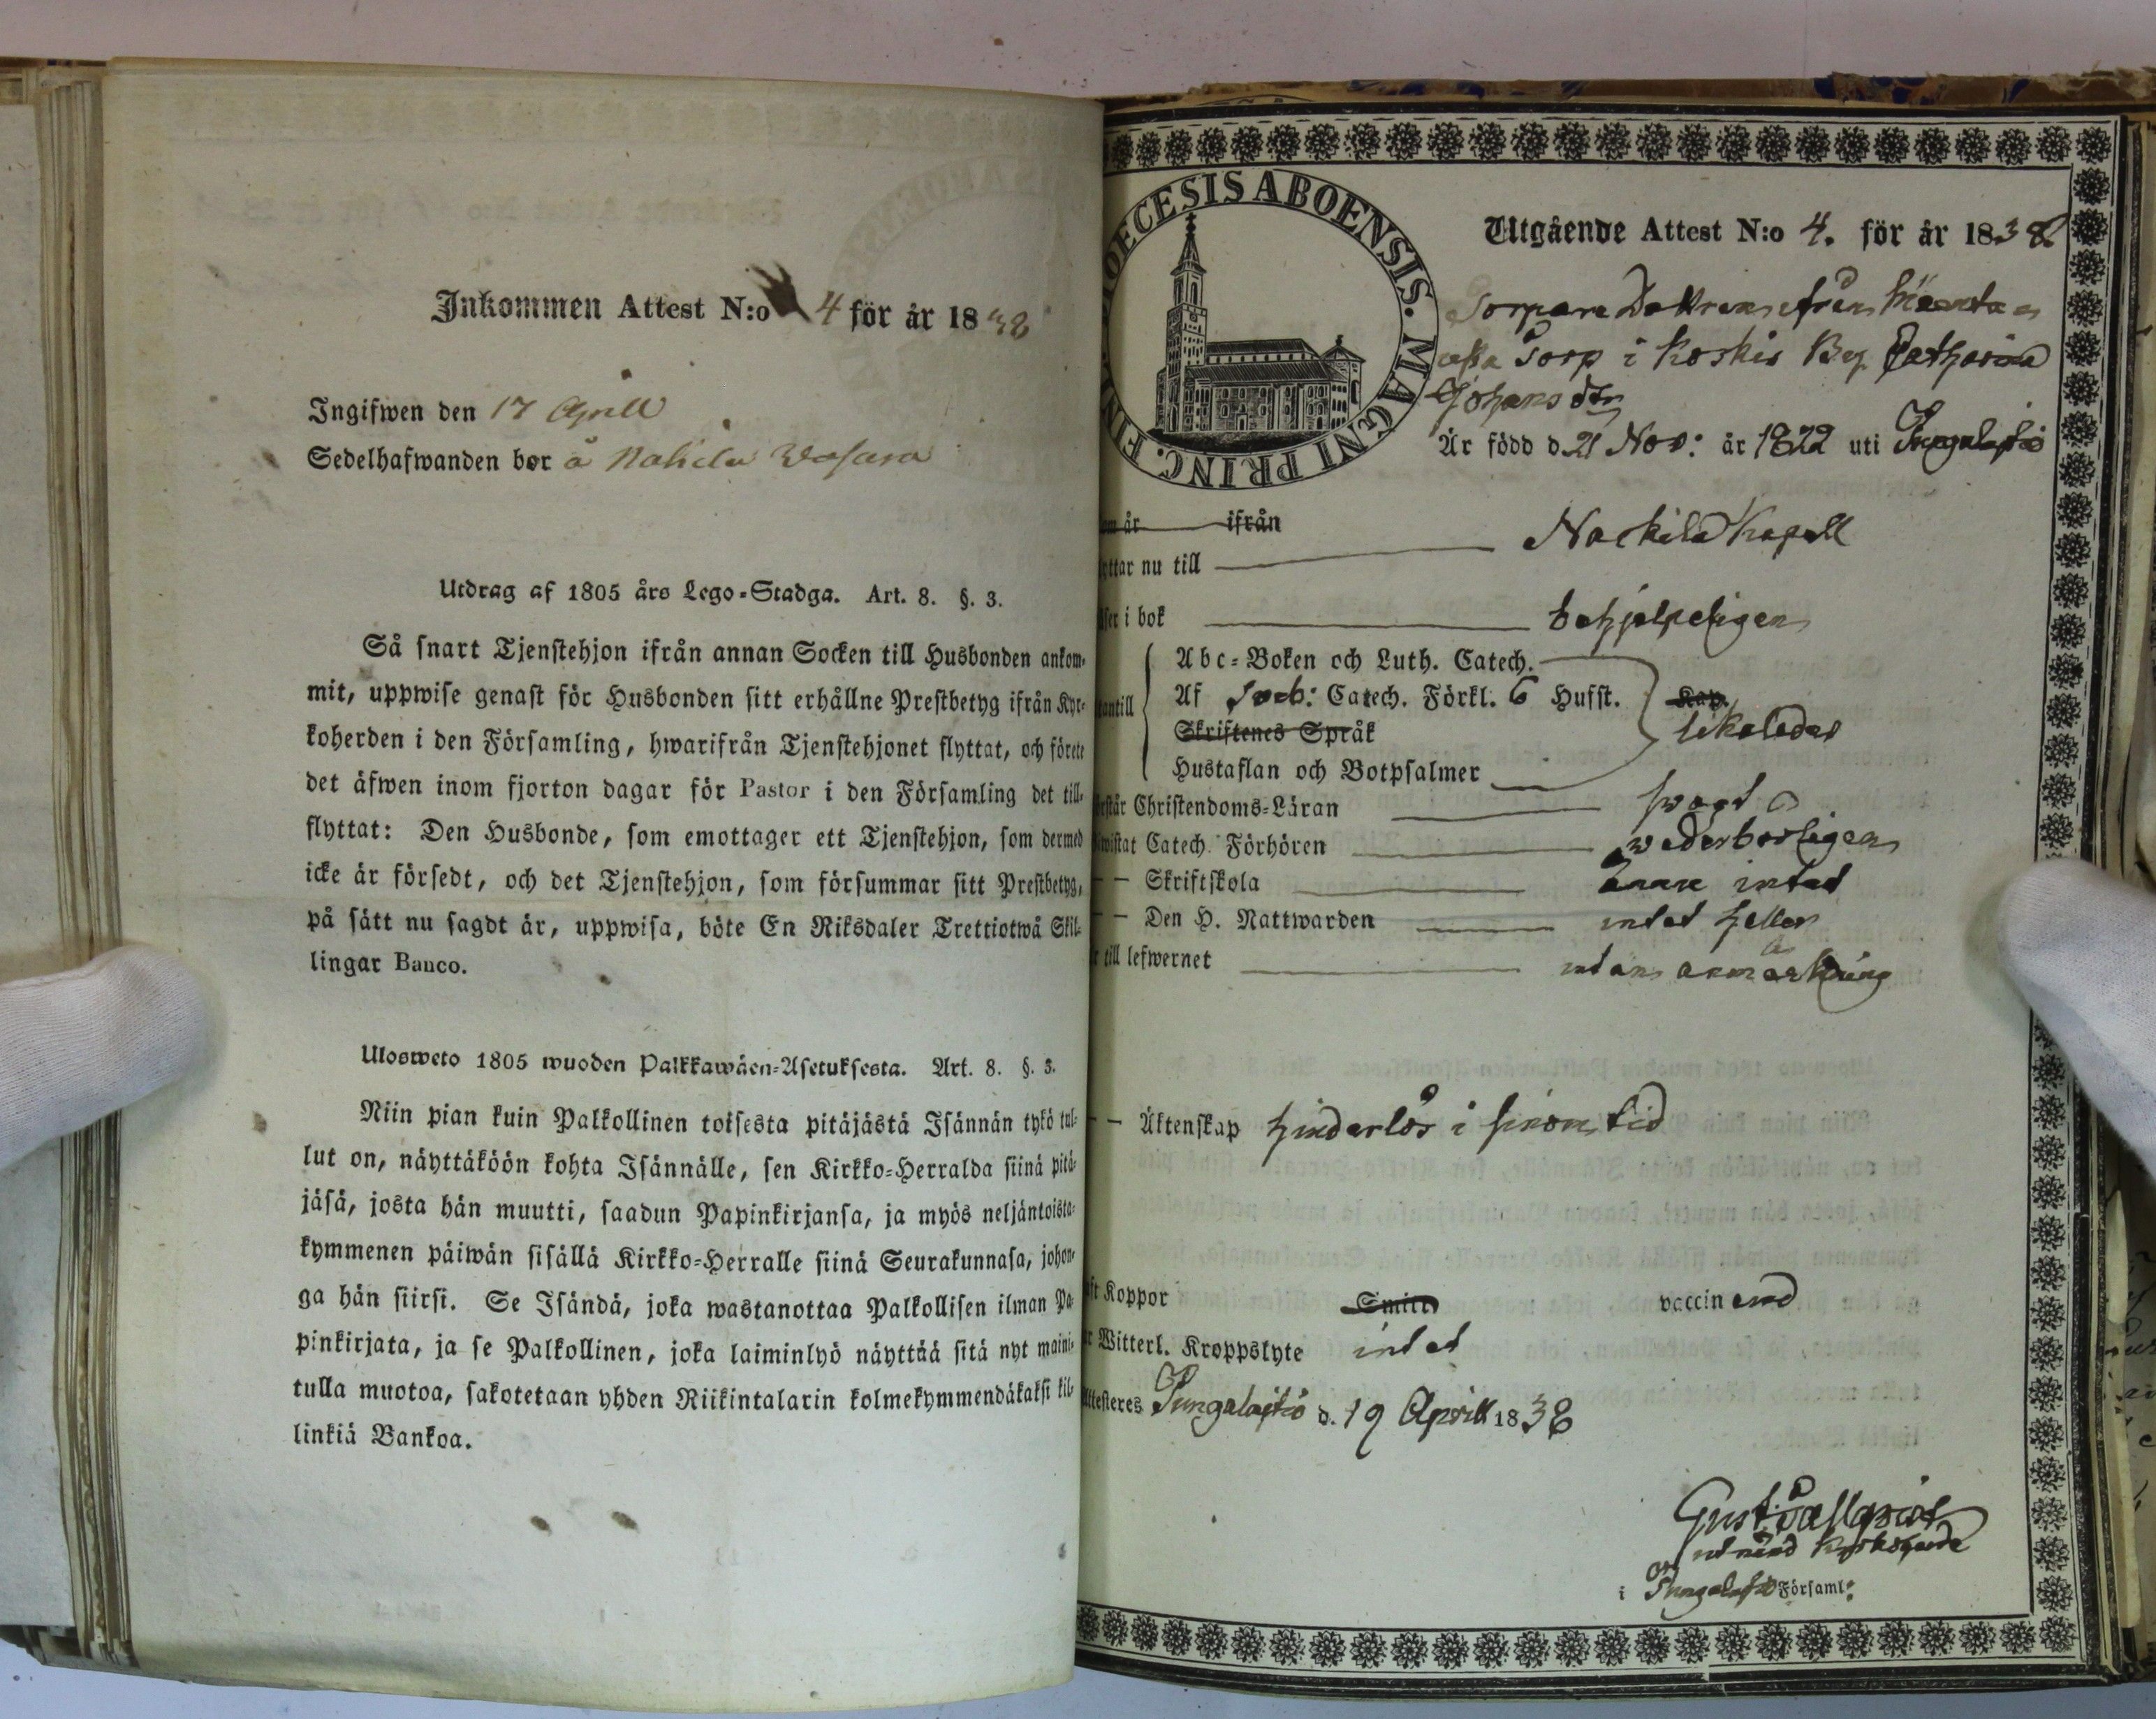 Inkommen Attest N:o 4 för år 1838
Ingifwen den 17 Aprill
Sedelhafwanden bor å Nakila Wasara
Utdrag af 1805 års Lego-Stadga. Art. 8. §. 3.
Så snart Tjenstehjon ifrån annan Socken till Husbonden ankom-
mit, uppwise genast för Husbonden sitt erhållne Prestbetyg ifrån Kyr-
koherden i den Församling, hwarifrån Tjenstehjonet flyttat, och förete
det äfwen inom fjorton dagar för Pastor i den Församling det till-
flyttat: Den Husbonde, som emottager ett Tjenstehjon, som dermed
icke är försedt, och det Tjenstehjon, som försummar sitt Prestbetyg,
på sätt nu sagdt är, uppwisa, böte En Riksdaler Trettiotwå Skil-
lingar Banco.
Ulosweto 1805 wuoden Palkkawäen-Asetuksesta. Art. 8. §. 3.
Niin pian kuin Palkollinen toisesta pitäjästä Isännän tykö tul-
lut on, näyttäköön kohta Isännälle, sen Kirkko-Herralda siinä pitä-
jäsä, josta hän muutti, saadun Papinkirjansa, ja myös neljäntoista-
kymmenen päiwän sisällä Kirkko-Herralle siinä Seurakunnasa, johon-
ga hän siirsi. Se Isändä, joka wastanottaa Palkollisen ilman Pa-
pinkirjata, ja se Palkollinen, joka laiminlyö näyttää sitä nyt maini-
tulla muotoa, sakotetaan yhden Riikintalarin kolmekymmendäkaksi kil-
linkiä Bankoa.
DIOECESIS ABOENSIS. MAGNI PRINC. FIN
Utgående Attest N:o 4. för år 1838
Torpare Dottren ifrån
Torp i Koskis By Catharina
Johans dtr
Är född d. 21 Nov: år 1822 uti Pungalaitio
om år ifrån
yttar nu till Nackila Kapell
äser i bok behjelpeligen
Abc-Boken och Luth. Catech.
Af Sveb: Catech. Förkl. 6 Hufst. Kap.
antill likaledes
Skriftenes Språk
Hustaflan och Botpsalmer
rstår Christendoms-Läran swagt
wistat Catech. Förhören wederbörligen
— — Skriftskola ännu intet
— — Den H. Nattwarden intet heller
r till lefwernet utan anmärkning
— — Äktenskap hinderlös i sinom tid
ft Koppor Smitt vaccinerad
r Witterl. Kroppslyte intet
ttesteres Pungalaitio d. 19 Aprill 1838
Gust:
utnämd Kyrkoherde
i Pungalaitio Församl: